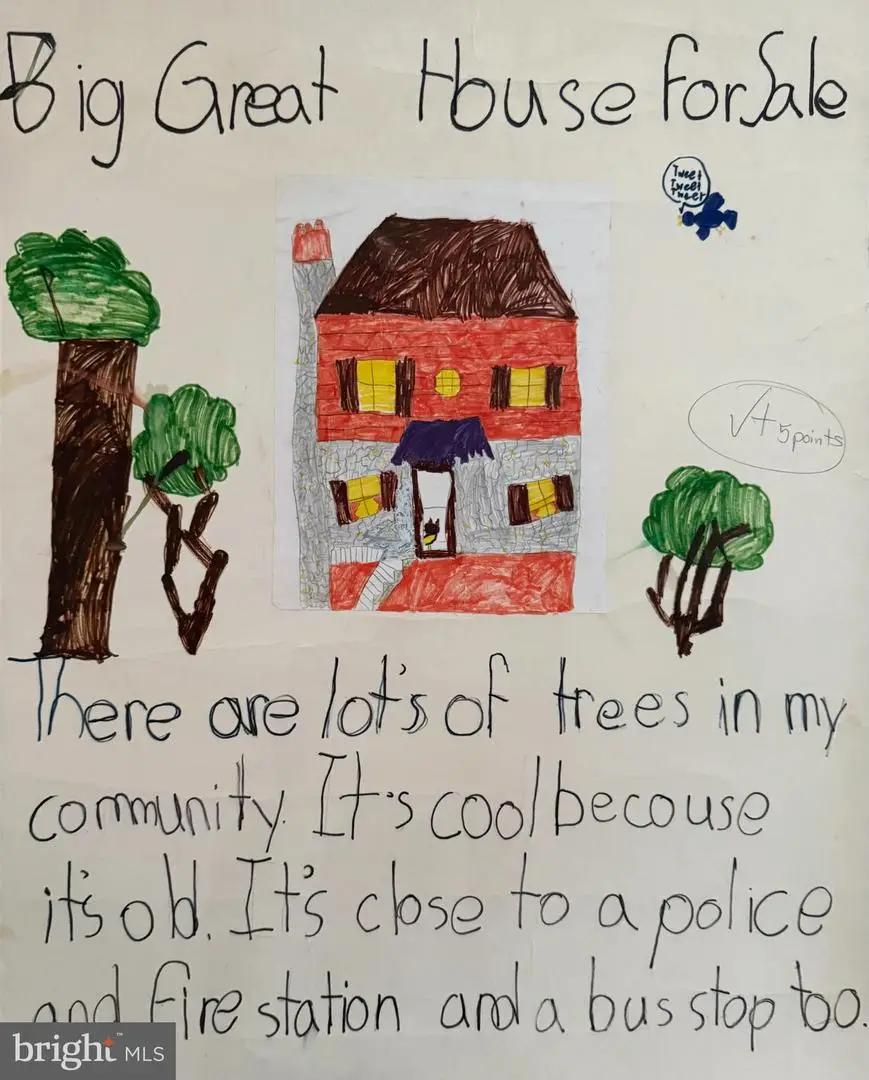 Big Great House For Sale
Tweet
Tweet
Tweet
√+ 5 points
There are lot's of trees in my
community. It's cool becouse
it's old. It's close to a police
and fire station and a bus stop too.
bright™ MLS